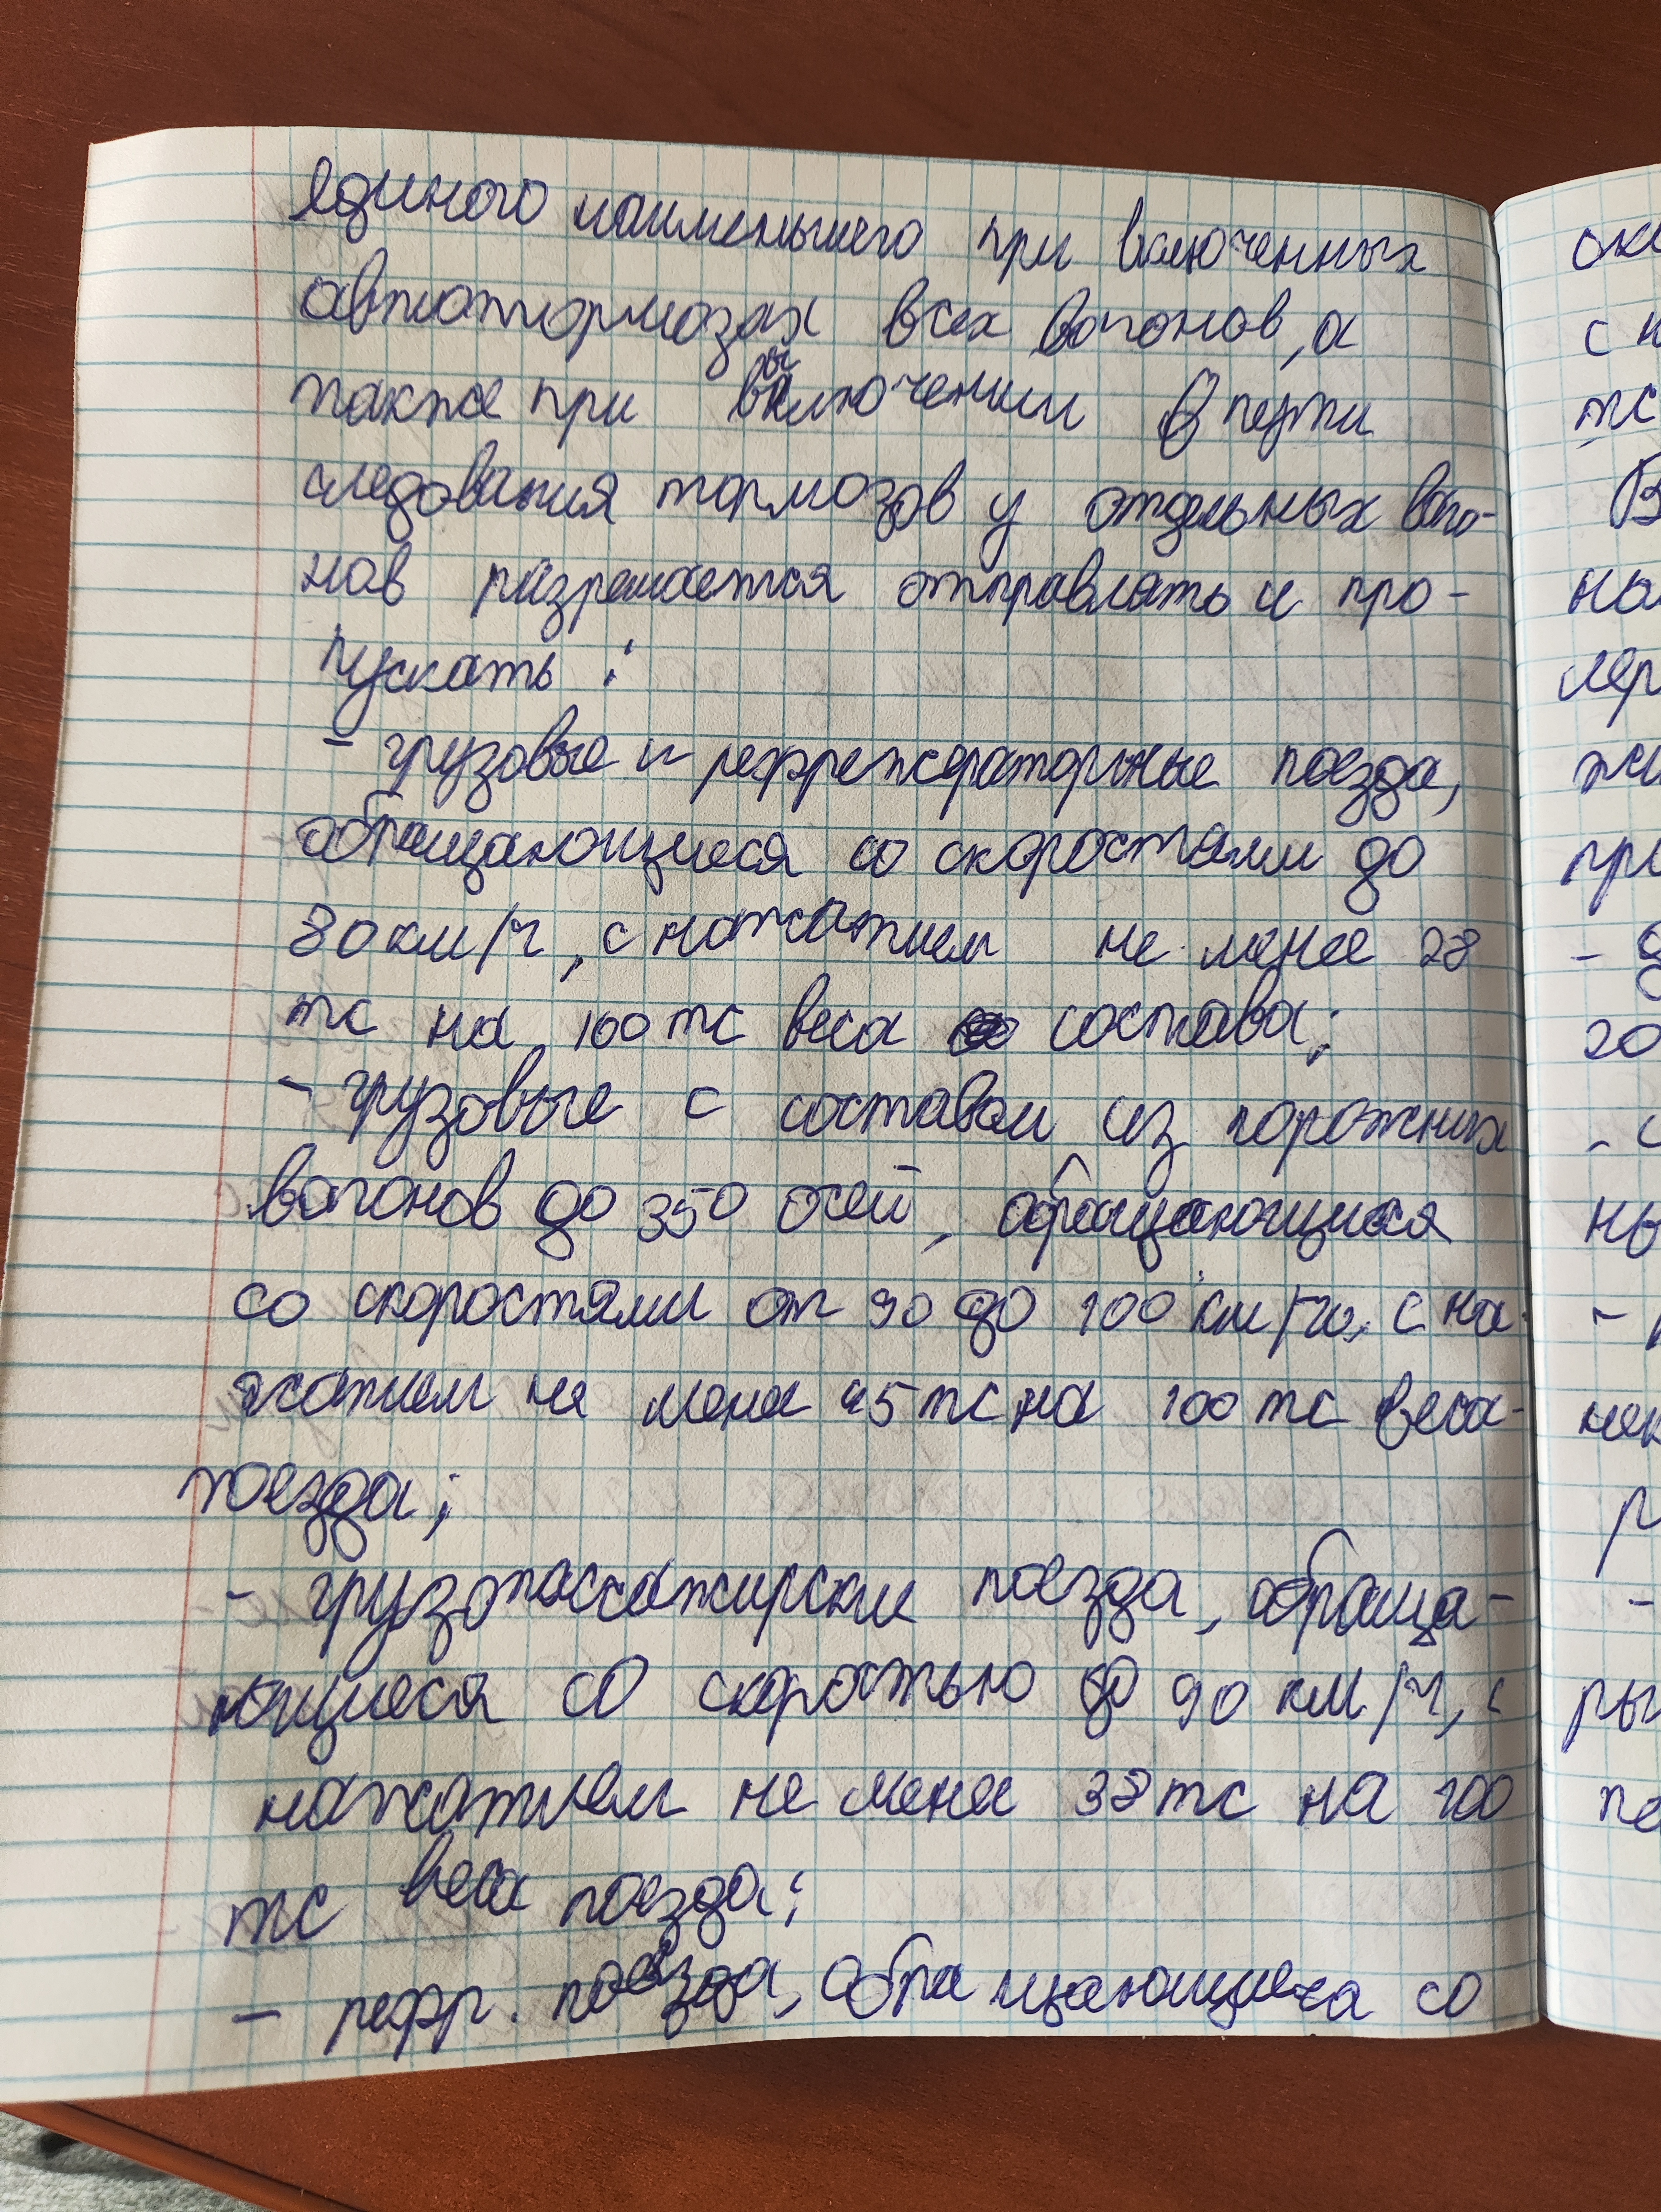 единого наименьшего при включенных
автотормозах всех вагонов, а
также при выключении в пути
следования тормозов у отдельных ваго-
нов разрешается отправлять и про-
пускать:
- грузовые и рефрежераторные поезда,
обращающиеся со скоростями до
80 км/ч, с нажатием не менее 28
тс на 100 тс веса состава;
- грузовые с составом из порожних
вагонов до 350 осей, обращающиеся
со скоростями от 90 до 100 км/ч, с на-
жатием не менее 45 тс на 100 тс веса
поезда;
- грузопассажирские поезда, обраща-
ющиеся со скоростью до 90 км/ч, с
нажатием не менее 38 тс на 100
тс веса поезда;
- рефр. поезда, обращающиеся со
с н
тс
В
на
лер
жи
при
- д
20
- с
ны
нек
ры
по